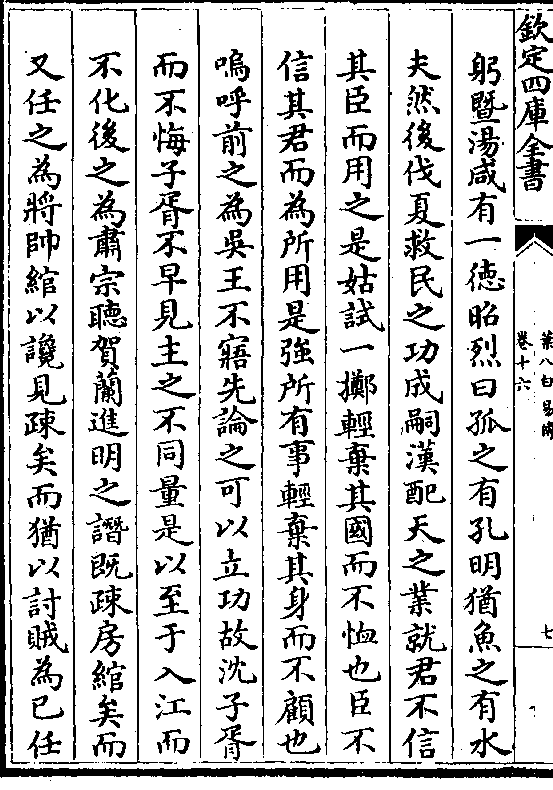 欽定四庫全書
葉八白易傳
卷十六
七
躬暨湯咸有一德昭烈曰孤之有孔明猶魚之有水
夫然後伐夏救民之功成嗣漢配天之業就君不信
其臣而用之是姑試一擲輕棄其國而不恤也臣不
信其君而為所用是強所有事輕棄其身而不顧也
嗚呼前之為吳王不寤先論之可以立功故沈子胥
而不悔子胥不早見主之不同量是以至于入江而
不化後之為肅宗聽賀蘭進明之譖既疎房綰矣而
又任之為將帥綰以讒見疎矣而猶以討賊為已任